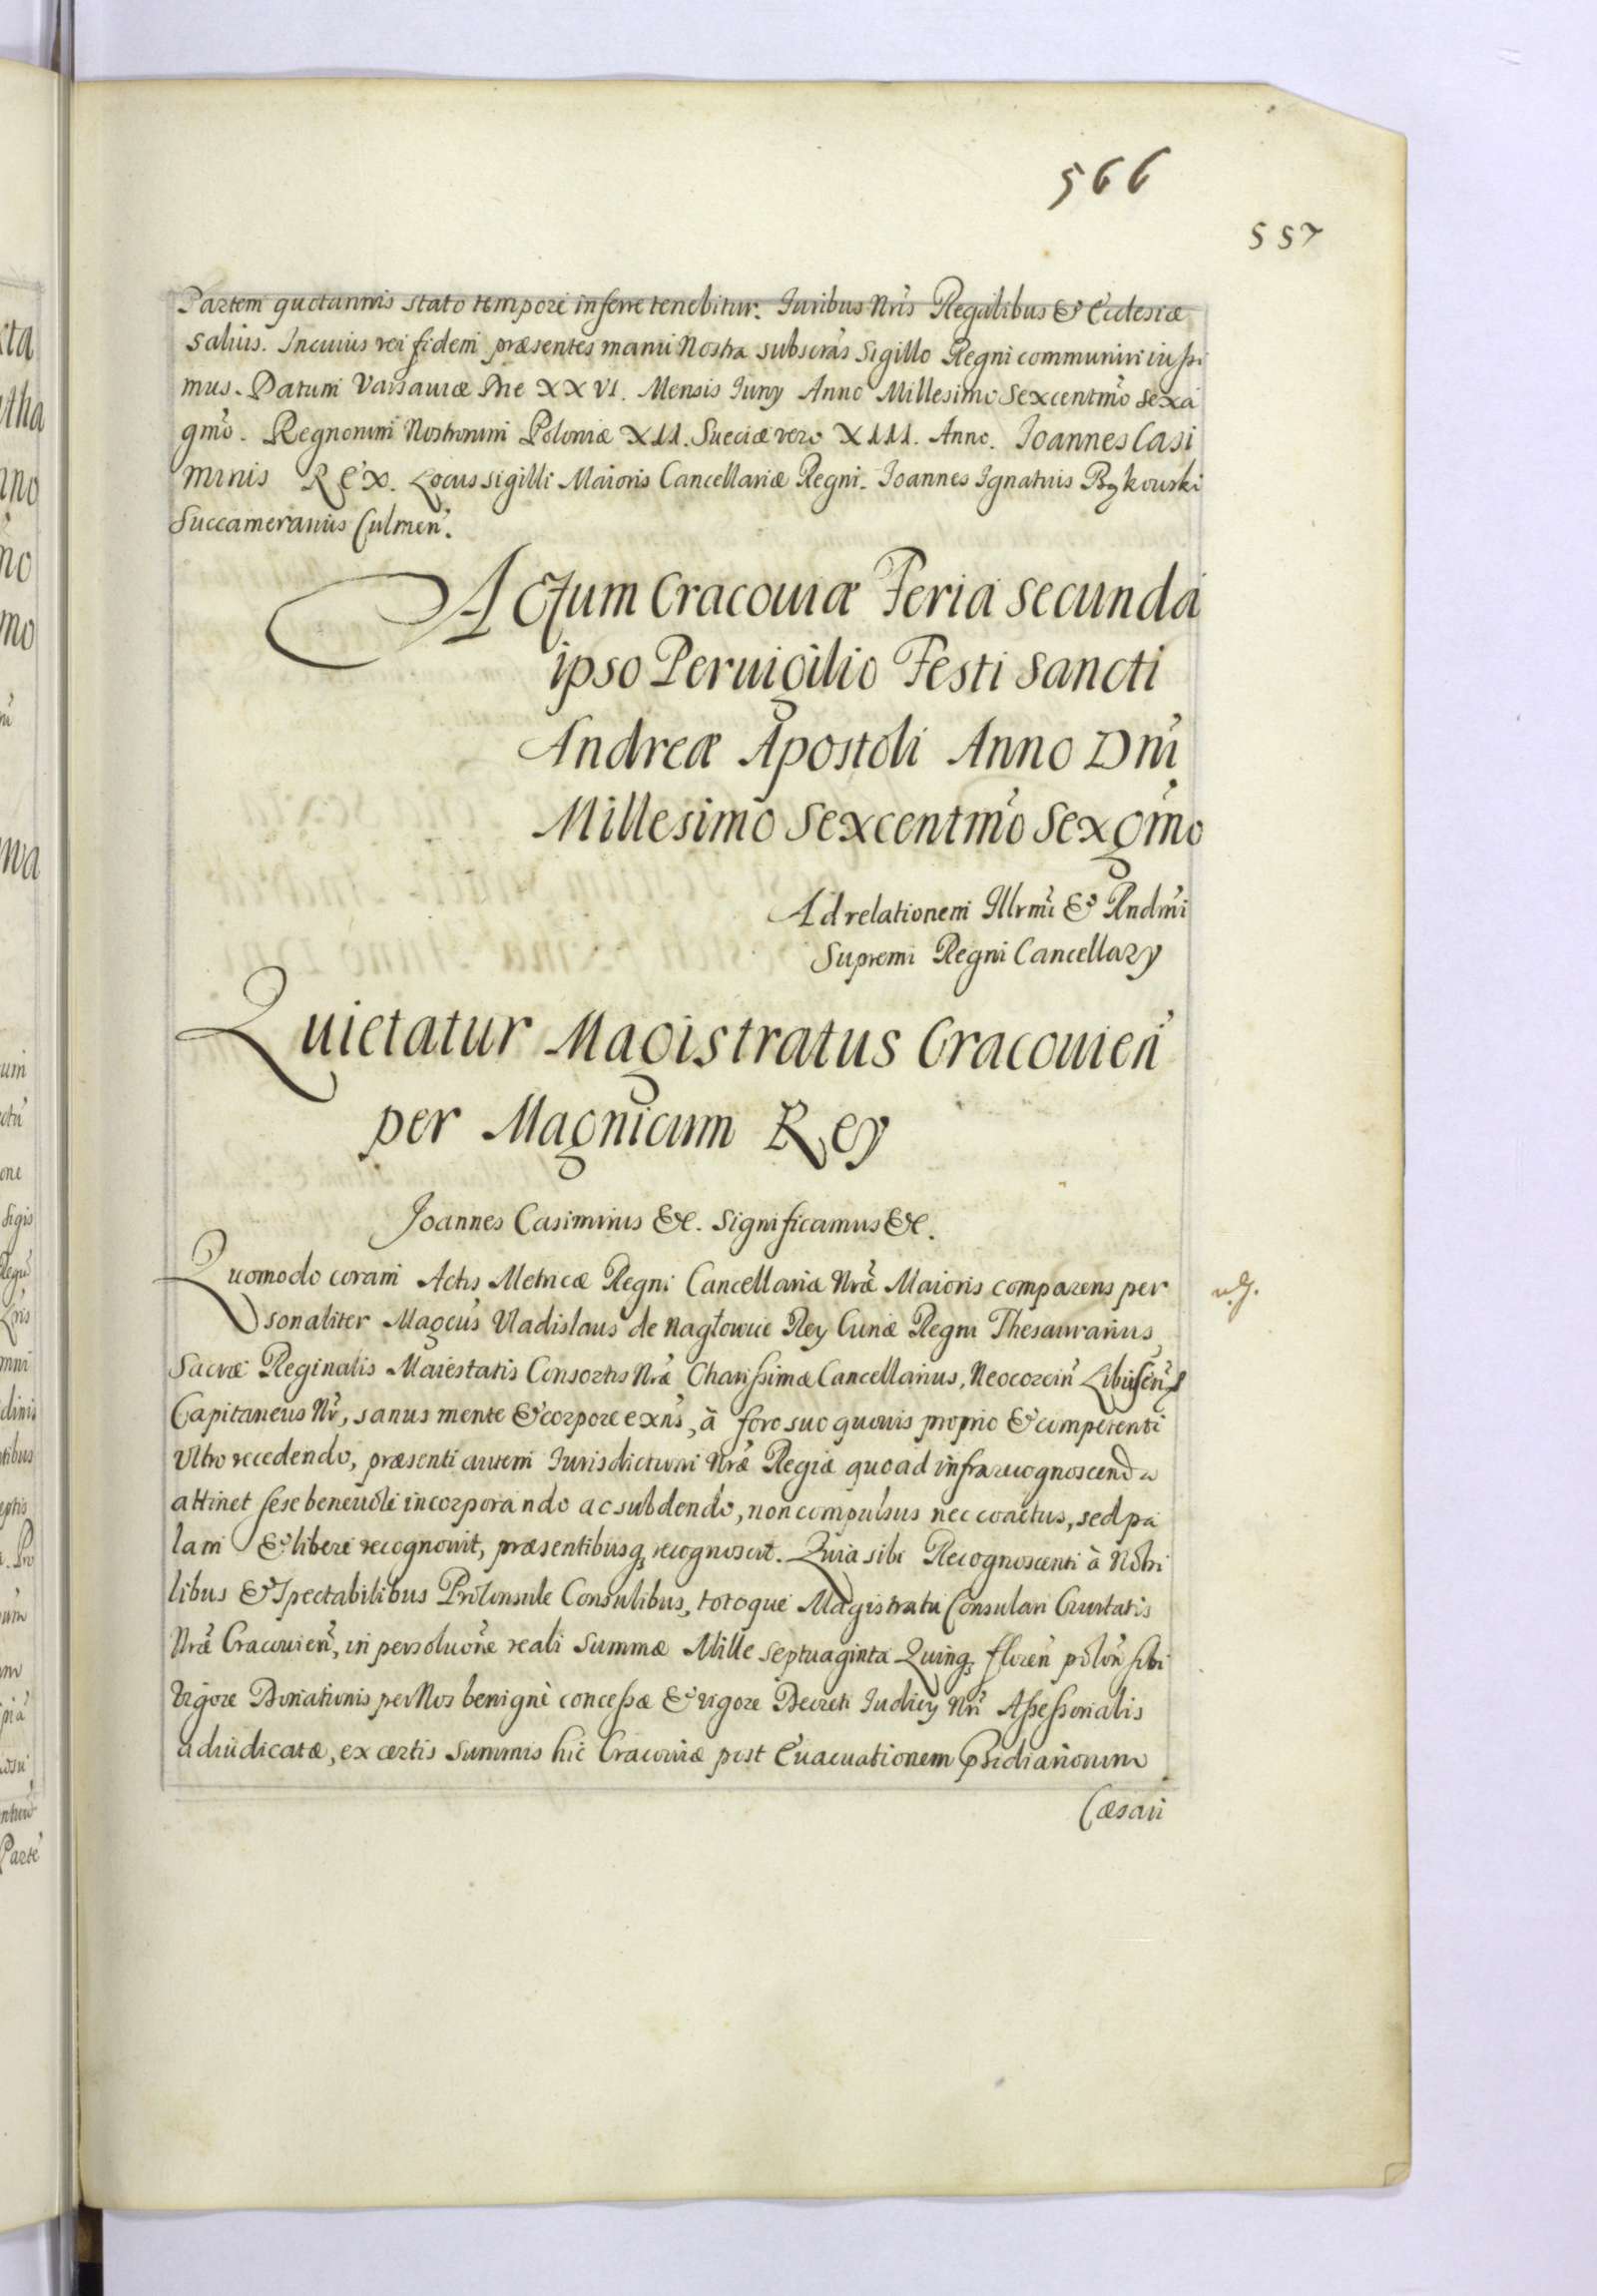 566
557
Partem quotannis stato tempore inferre tenebitur. Juribus Nr̃is Regalibus & Ecclesiæ
saluis. In cuius rei fidem præsentes manu Nostra subscrãs Sigillo Regni communiri iussi
mus. Datum Varsauiæ Die XXVI. Mensis Juny Anno Millesimo Sexcentmõ Sexa
gmõ. Regnorum Nostrorum Poloniæ XII. Sueciæ vero XIII. Anno. Joannes Casi
mirus REX. Locus sigilli Maioris Cancellariæ Regni. Joannes Ignatius Bąkowski
Succamerarius Culmeñ.
Actum Cracouiæ Feria secunda
ipso Peruigilio Festi Sancti
Andreæ Apostoli Anno Dñi
Millesimo Sexcentmõ Sexgmõ
Ad relationem Illrmĩ & Rndmĩ
Supremi Regni Cancellary
Quietatur Magistratus Cracouieñ
per Magnicum Rey
Joannes Casimirus &c. Significamus &c.
Quomodo coram Actis Metricæ Regni Cancellariæ Nræ̃ Maioris comparens per
sonaliter Magcus̃ Vladislaus de Nagłowice Rey Curiæ Regni Thesaurarius,
Sacræ Reginalis Maiestatis Consortis Nræ̃ Charissimæ Cancellarius, Neocorciñ Libuseñ
Capitaneus Nr̃, sanus mente & corpore exñs, à foro suo quouis proprio & competenti
Vltro recedendo, præsenti autem Jurisdictioni Nræ̃ Regiæ quoad infra recognoscenda
attinet sese beneuole incorporando ac subdendo, non compulsus nec coactus, sed pa
lam & libere recognouit, præsentibusq; recognoscit. Quia sibi Recognoscenti à Nobi
libus & Spectabilibus Proconsule Consulibus, totoque Magistratu Consulari Ciuitatis
Nræ̃ Cracouieñ, in persoluoñe reali Summæ Mille septuaginta Quinq; floreñ poloñ sibi
Vigore Donationis per Nos benignè concessæ & vigore Decreti Judicy Nrĩ Assessorialis
adiudicatæ, ex certis summis hic Cracouiæ post Euacuationem Psidiariorum
Cæsari